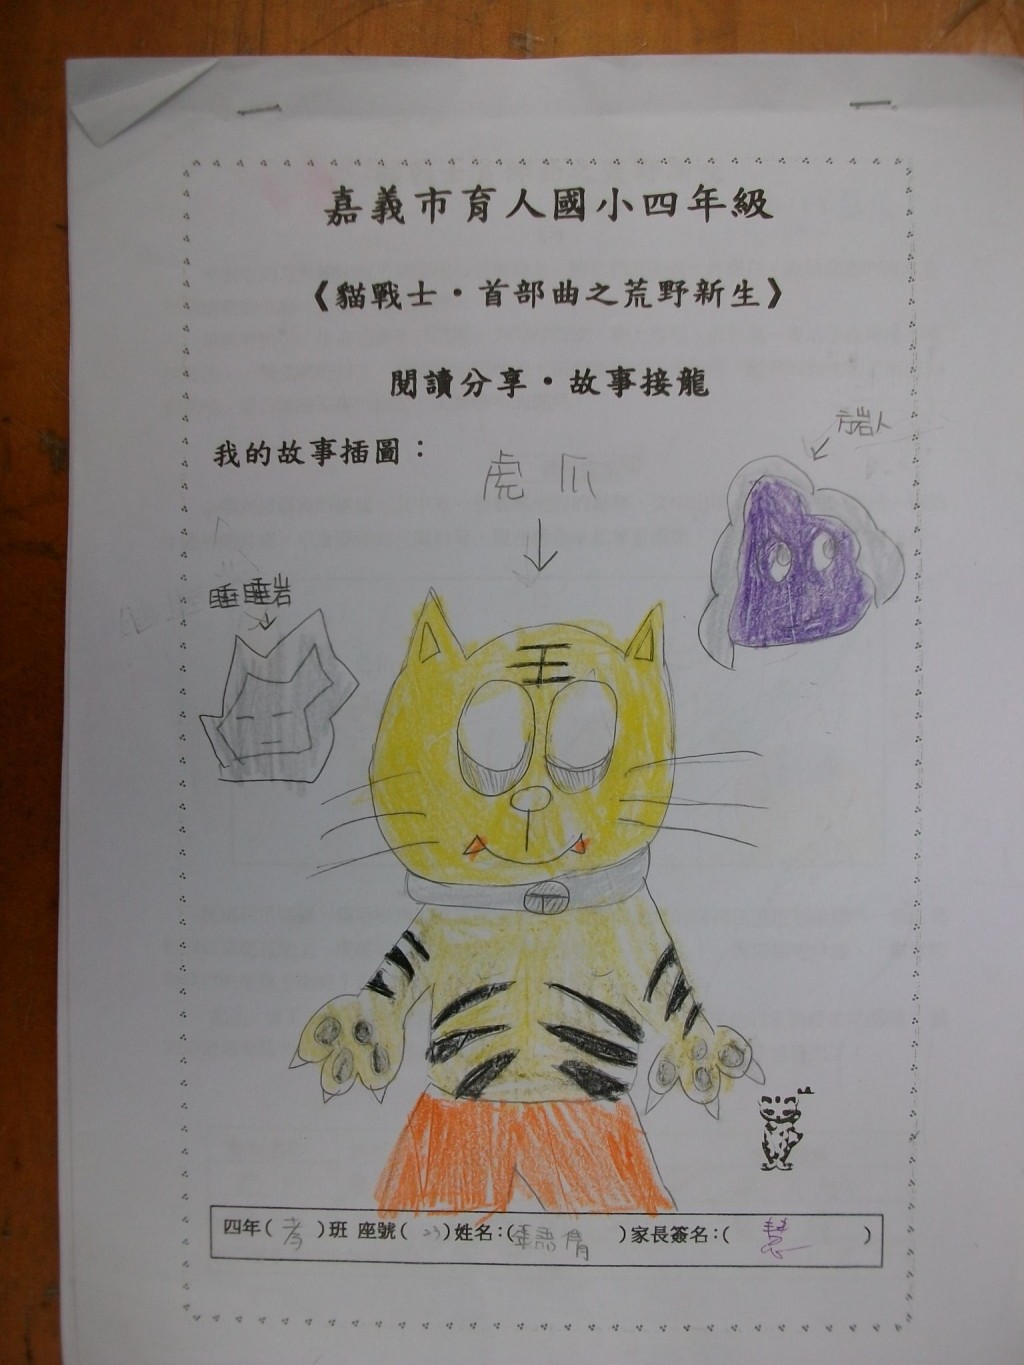 嘉義市育人國小四年級
《貓戰士·首部曲之荒野新生》
閱讀分享·故事接龍
我的故事插圖：
虎爪
方岩人
睡睡岩
王
四年(孝)班 座號(23)姓名:( 語倩 )家長簽名:( 慧 )